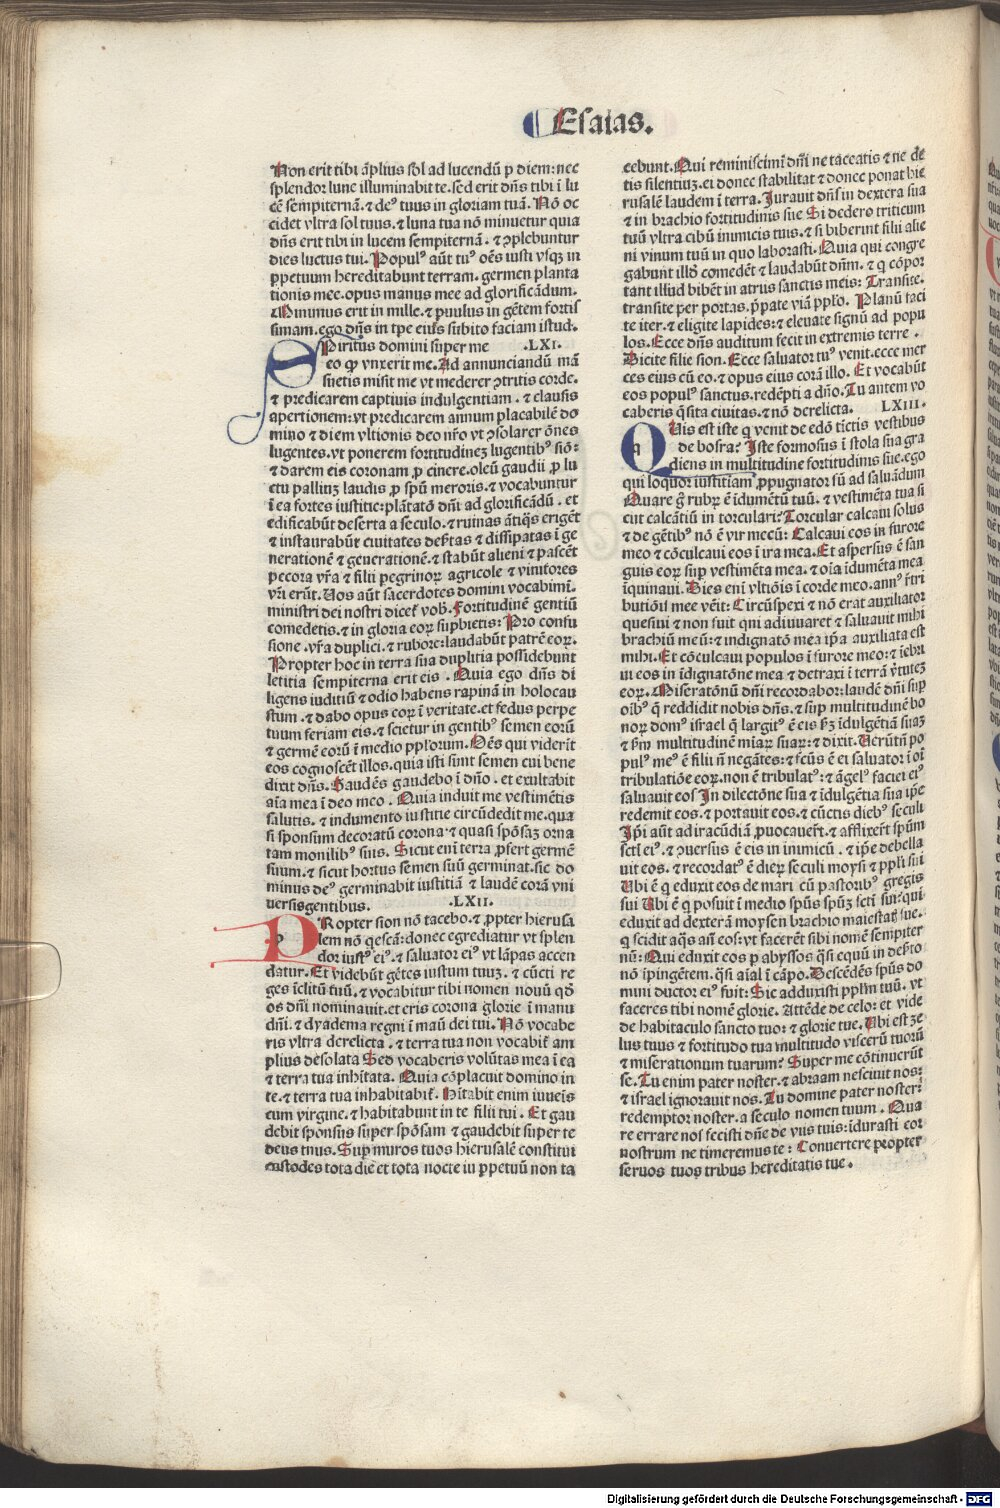 Esaias.
Non erit tibi āplius sol ad lucendū p diem: nec
splendor lune illuminabit te. sed erit dn̄s tibi ī lu
cē sempiternā. ⁊ de⁹ tuus in gloriam tuā. Nō oc
cidet vltra sol tuus. ⁊ luna tua nō minuetur quia
dn̄s erit tibi in lucem sempiternā. ⁊ ↄplebuntur
dies luctus tui. Popul⁹ aūt tu⁹ oēs iusti vsqꝫ in
ꝑpetuum hereditabunt terram. germen planta
tionis mee. opus manus mee ad glorificādum.
Minimus erit in mille. ⁊ ꝑuulus in gētem fortis
simam. ego dn̄s in tpe eius subito faciam istud.
Spiritus domini super me .LXI.
eo ꝙ vnxerit me. Ad annunciandū mā
suetis misit me vt mederer ↄtritis corde.
⁊ predicarem captiuis indulgentiam . ⁊ clausis
apertionem: vt predicarem annum placabilē do
mino ⁊ diem vltionis deo nr̄o vt ↄsolarer ōnes
lugentes. vt ponerem fortitudinez lugentib⁹ siō:
⁊ darem eis coronam ꝓ cinere. oleū gaudii ꝓ lu
ctu palliuꝫ laudis ꝓ spū meroris. ⁊ vocabuntur
ī ea fortes iustitie: plātatō dn̄i ad glorificādū . et
edificabūt deserta a seculo. ⁊ ruinas ātiq̄s erigēt
⁊ instaurabūt ciuitates deꝭtas ⁊ dissipatas ī ge
nerationē ⁊ generationē. ⁊ stabūt alieni ⁊ pascēt
pecora vr̄a ⁊ filii pegrinoꝝ agricole ⁊ vinitores
vr̄i erūt. Uos aūt sacerdotes domini vocabimī.
ministri dei nostri dicet̄ vob̄. Fortitudinē gentiū
comedetis. ⁊ in gloria eoꝝ suꝑbietis: Pro confu
sione .vr̄a duplici. ⁊ rubore: laudabūt patrē eoꝝ.
Propter hoc in terra sua duplitia possidebunt
letitia sempiterna erit eis . Quia ego dn̄s di
ligens iuditiū ⁊ odio habens rapinā in holocau
stum. ⁊ dabo opus eoꝝ ī veritate. et fedus perpe
tuum feriam eis. ⁊ scietur in gentib⁹ semen eorū
⁊ germē eorū ī medio pplōrum. Oēs qui viderīt
eos cognoscēt illos. quia isti sunt semen cui bene
dixit dn̄s. Gaudēs gaudebo ī dn̄o . et exultabit
aīa mea ī deo meo . Quia induit me vestimētis
salutis. ⁊ indumento iustitie circūdedit me. qua
si sponsum decoratū corona ⁊ quasi spōsaꝫ orna
tam monilib⁹ suis. Sicut enī terra ꝓfert germē
suum. ⁊ sicut hortus semen suū germinat. sic do
minus de⁹ germinabit iustitiā ⁊ laudē corā vni
uersis gentibus. .LXII.
PRopter sion nō tacebo. ⁊ ꝓpter hierusa
lem nō q̄escā: donec egrediatur vt splen
dor iust⁹ ei⁹. ⁊ saluator ei⁹ vt lāpas accen
datur. Et videbūt gētes iustum tuuꝫ. ⁊ cūcti re
ges īclitū tuū. ⁊ vocabitur tibi nomen nouū qđ
os dn̄i nominauit. et eris corona glorie ī manu
dn̄i. ⁊ dyadema regni ī maū dei tui. Nō vocabe
ris vltra derelicta . ⁊ terra tua non vocabit̄ am
plius desolata Sed vocaberis volūtas mea ī ea
⁊ terra tua inh̄itata. Quia cōplacuit domino in
te. ⁊ terra tua inhabitabit̄. Hītabit enim iuueis
cum virgine. ⁊ habitabunt in te filii tui . Et gau
debit sponsus super spōsam ⁊ gaudebit super te
deus tuus. Suꝑ muros tuos hierusalē constitui
custodes tota die et tota nocte iu ꝑpetuū non ta
cebunt. Qui reminiscimī dn̄i ne taceatis ⁊ ne de
tis silentiuꝫ. ei donec stabilitat ⁊ donec ponat hie
rusalē laudem ī terra. Jurauit dn̄s in dextera sua
⁊ in brachio fortitudinis sue Si dedero triticum
tuū vltra cibū inimicis tuis. ⁊ si biberint filii alie
ni vinum tuū in quo laborasti. Quia qui congre
gabunt illđ comedēt ⁊ laudabūt dn̄m. ⁊ q cōpor
tant illud bibēt in atriis sanctis meis: Transite.
transite per portas. ꝑpate viā pplō. Planū faci
te iter. ⁊ eligite lapides: ⁊ eleuate signū ad popu
los. Ecce dn̄s auditum fecit in extremis terre .
Dicite filie sion. Ecce saluator tu⁹ venit. ecce mer
ces eius cū eo. ⁊ opus eius corā illo. Et vocabūt
eos popul⁹ sanctus. redēpti a dn̄o. Tu autem vo
caberis q̄sita ciuitas. ⁊ nō derelicta. LXIII.
QUis est iste q venit de edō tīctis vestibus
de bosra? Iste formosus ī stola sua gra
diens in multitudine fortitudinis sue. ego
qui loquor iustitiam ꝓpugnator sū ad saluādum
Quare g̊ rubꝝ ē idumētū tuū. ⁊ vestimēta tua si
cut calcātiū in torculari? Torcular calcaui solus
⁊ de gētib⁹ nō ē vir mecū: Calcaui eos in furore
meo ⁊ cōculcaui eos ī ira mea. Et aspersus ē san
guis eoꝝ suꝑ vestimēta mea. ⁊ oīa idumēta mea
īquinaui. Dies enī vltiōis ī corde meo. ann⁹ r̄tri
butiōīs mee vēit: Circūspexi ⁊ nō erat auxiliator
quesiui ⁊ non fuit qui adiuuaret ⁊ saluauit mihi
brachiū meū: ⁊ indignatō mea ip̄a auxiliata est
mihi. Et cōculcaui populos ī furore meo: ⁊ iebri
ui eos in īdignatōne mea ⁊ detraxi ī terrā v̄tuteꝫ
eoꝝ. Miseratōnū dn̄i recordabor: laudē dn̄i suꝑ
oīb⁹ q̄ reddidit nobis dn̄s. ⁊ suꝑ multitudinē bo
noꝝ dom⁹ israel q̄ largit⁹ ē eis ꝑm̄ īdulgētiā suaꝫ
⁊ ꝑm̄ multitudinē mīaꝝ suaꝝ: ⁊ dixit. Uerūtn̄ po
pul⁹ me⁹ ē filii nō negātes: ⁊ fcūs ē ei saluator ī oī
tribulatiōe eoꝝ. non ē tribulat⁹: ⁊ āgel⁹ faciei ei⁹
saluauit eos In dilectōne sua ⁊ īdulgētia sua ip̄e
redemit eos. ⁊ portauit eos. ⁊ cūctis dieb⁹ seculi
Ip̄i aūt ad iracūdiā ꝓuocauer̄t. ⁊ afflixer̄t spūm
sctī ei⁹. ⁊ ↄuersus ē eis in inimicū . ⁊ ip̄e debella
uit eos. ⁊ recordat⁹ ē dieꝝ seculi moysi ⁊ pplī sui
Ubi ē q eduxit eos de mari cū pastorib⁹ gregis
sui Ubi ē q posuit ī medio spūs spūꝫ sctī sui: qui
eduxit ad dexterā moysen brachio maiestat̄ sue.
q scidit aq̄s an̄ eos: vt facerēt sibi nomē sempiter
nū: Qui eduxit eos ꝑ abyssos q̄si equū in deꝭto
nō īpingētem. q̄si aīal ī cāpo. Descēdēs spūs do
mini ductor ei⁹ fuit: Sic adduxisti pplm̄ tuū. vt
faceres tibi nomē glorie. Attēde de celo: et vide
de habitaculo sancto tuo: ⁊ glorie tue. Ubi est ze
lus tuus ⁊ fortitudo tua multitudo viscerū tuorū
⁊ miserationum tuarum? Super me cōtinuerūt
se. Tu enim pater noster. ⁊ abraam nesciuit nos:
⁊ israel ignorauit nos. Tu domine pater noster:
redemptor noster. a seculo nomen tuum . Qua
re errare nos fecisti dn̄e de viis tuis: īdurasti cor
nostrum ne timeremus te : Conuertere propter
seruos tuos tribus hereditatis tue.
Digitalisierung gefördert durch die Deutsche Forschungsgemeinschaft - DFG